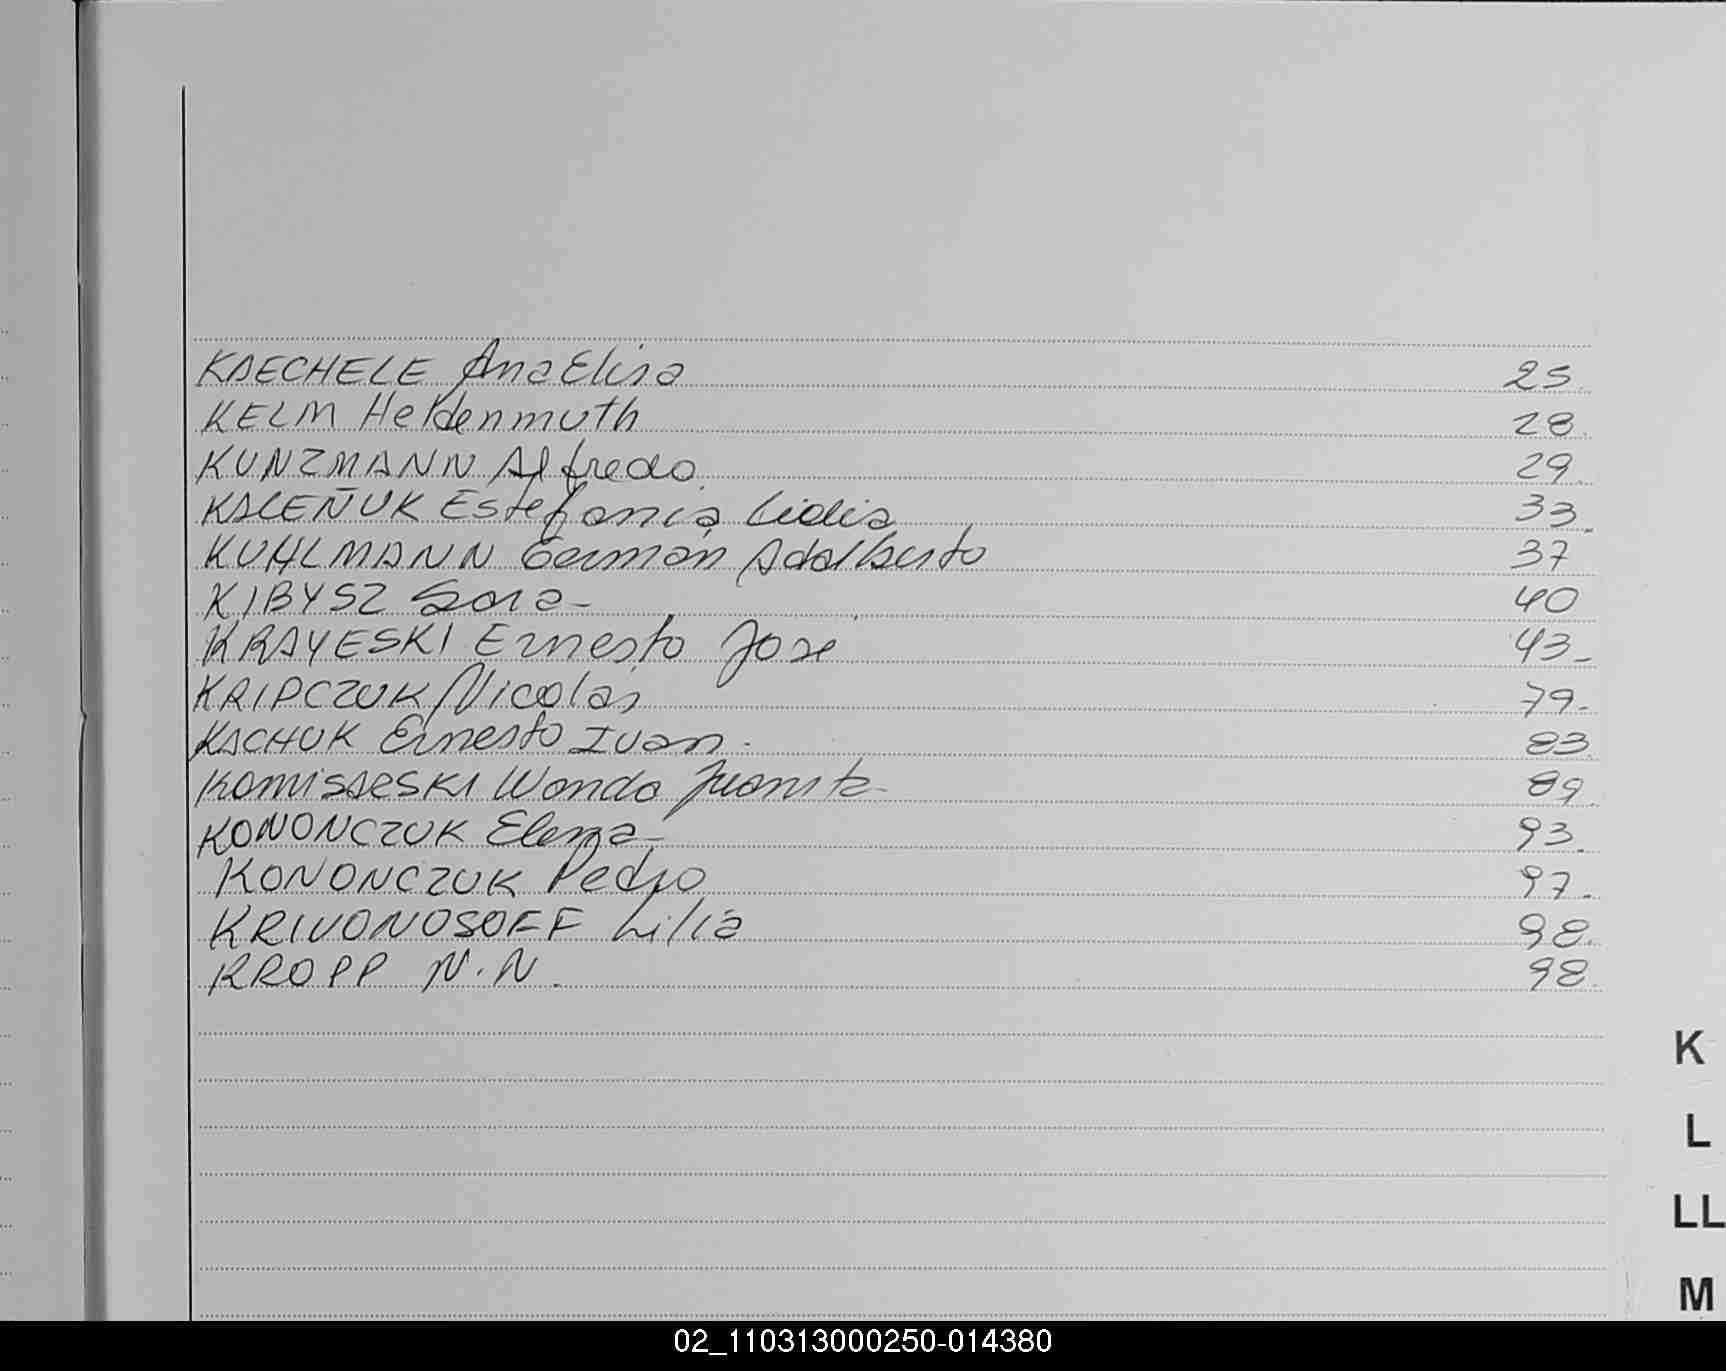 KAECHELE Ana Elisa 25
KELM Heldenmuth 28
KUNZMANN Alfredo 29
KALEÑUK Estefania Lidia 33
KUHLMANN German Adalberto 37
KIBYSZ Sara 40
KRAYESKI Ernesto Jose 43
KRIPCZUK Nicolas 79
KACHUK Ernesto Ivan 83
KOMISARSKI Wanda Juanita 89
KONONCZUK Elena 93
KONONCZUK Pedro 97
KRIVONOSOFF Lilia 98
KROPP N.N 98
K
L
LL
M
02_110313000250-014380